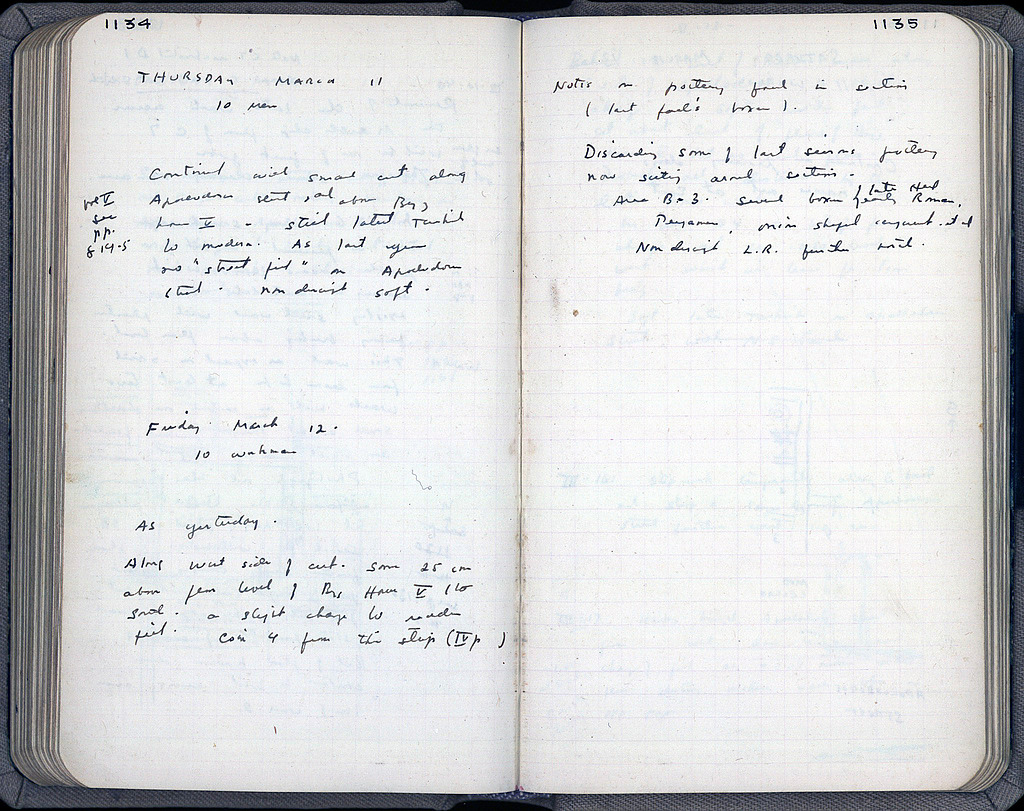 1134
THURSDAY MARCH 11
10 men
Continued with small cut along
vol V
see
pp.
819-5
Areopagus street, at above Byz
House V - still latest Turkish
to modern. As last year
no "street fill" on Areopagus
street. nondescript soft.
Friday March 12.
10 workmen
As yesterday.
Along west side of cut. Some 25 cm
above floor level of Byz House V (to
South. a slight change to
fill. Coin 4 from this strip (IV p )
1135
Notes on pottery found in section
(last fall's boxes).
Discarding some of last seasons pottery
now sitting around section.
Area B-3. several boxes late Hell
/early Roman,
Pergamene, onion shaped unguent. et al
Nondescript L.R. further north.